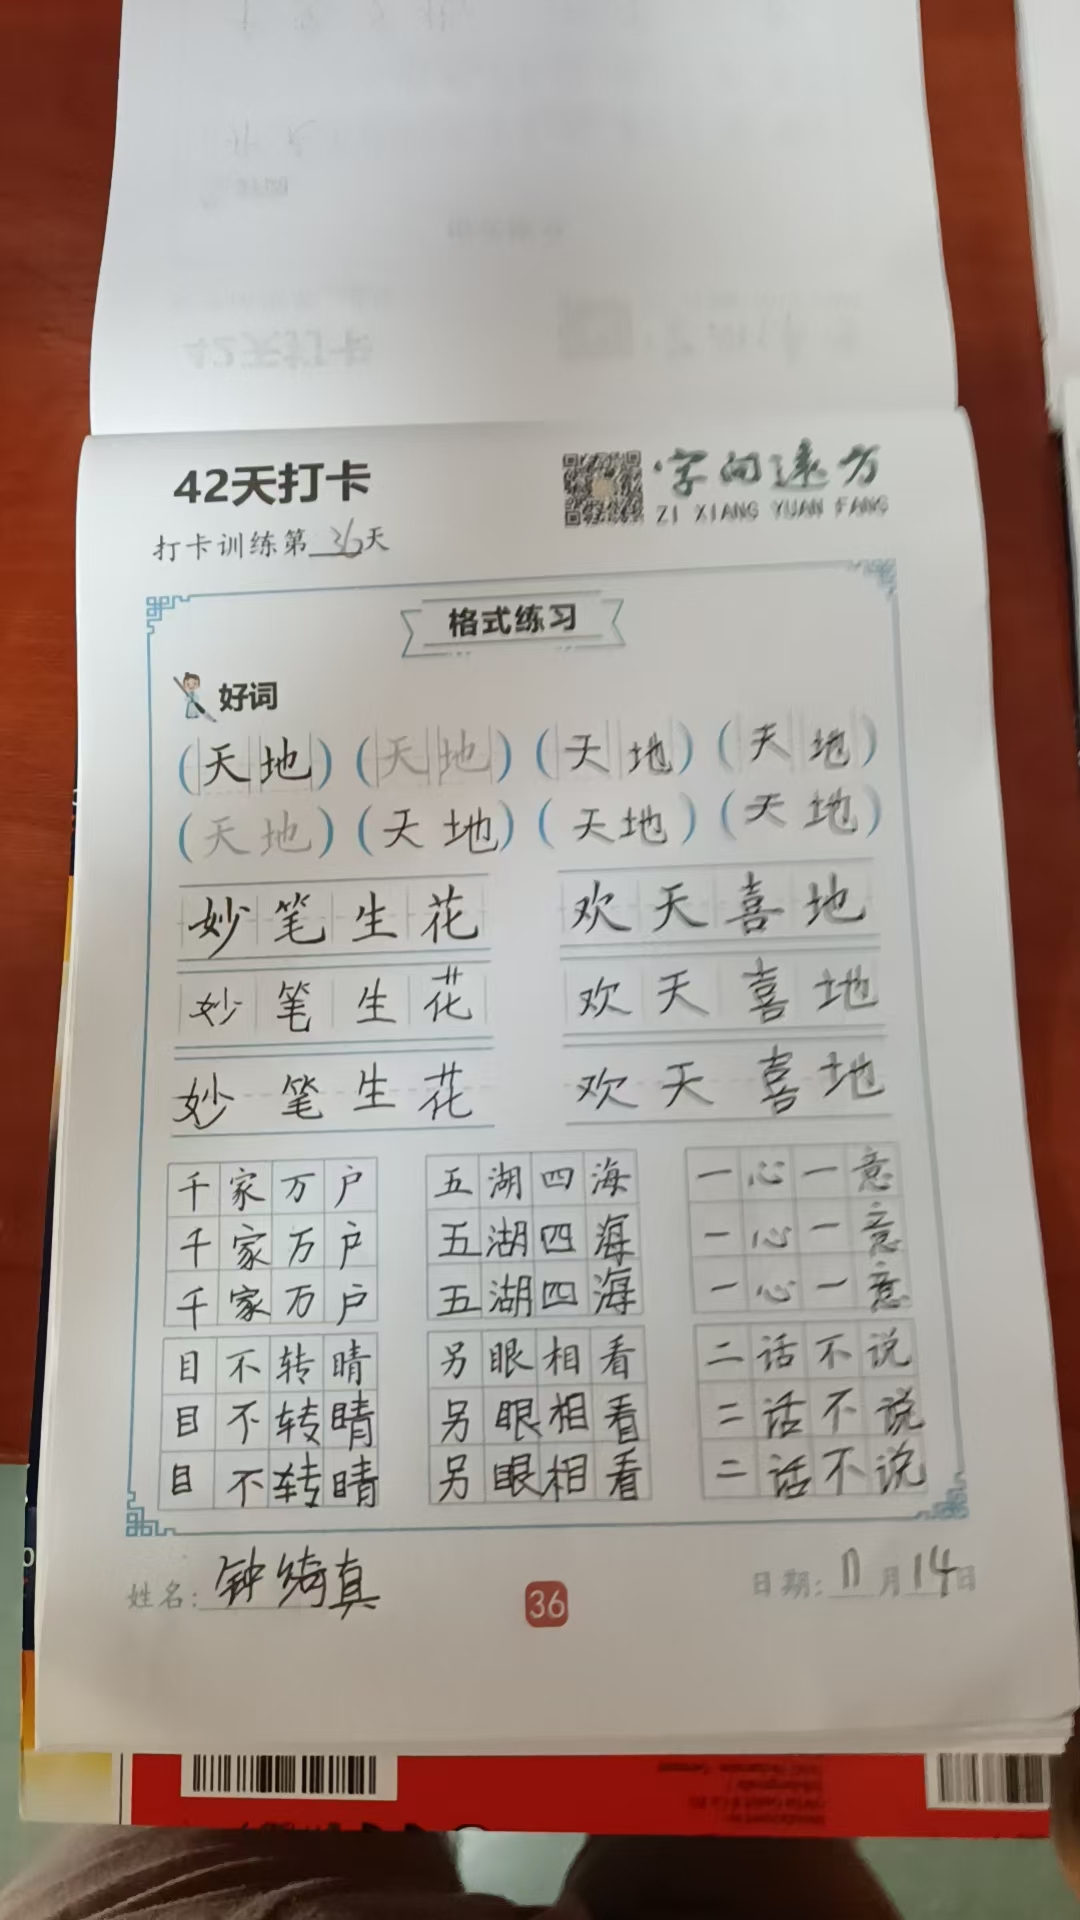 42天打卡
字向远方
ZI XIANG YUAN FANG
打卡训练第36天
格式练习
好词
(天地) (天地) (天地) (天地)
(天地) (天地) (天地) (天地)
妙笔生花 欢天喜地
妙笔生花 欢天喜地
妙笔生花 欢天喜地
千家万户 五湖四海 一心一意
千家万户 五湖四海 一心一意
千家万户 五湖四海 一心一意
目不转睛 另眼相看 二话不说
目不转睛 另眼相看 二话不说
目不转睛 另眼相看 二话不说
姓名:钟绮真 36 日期:11月14日